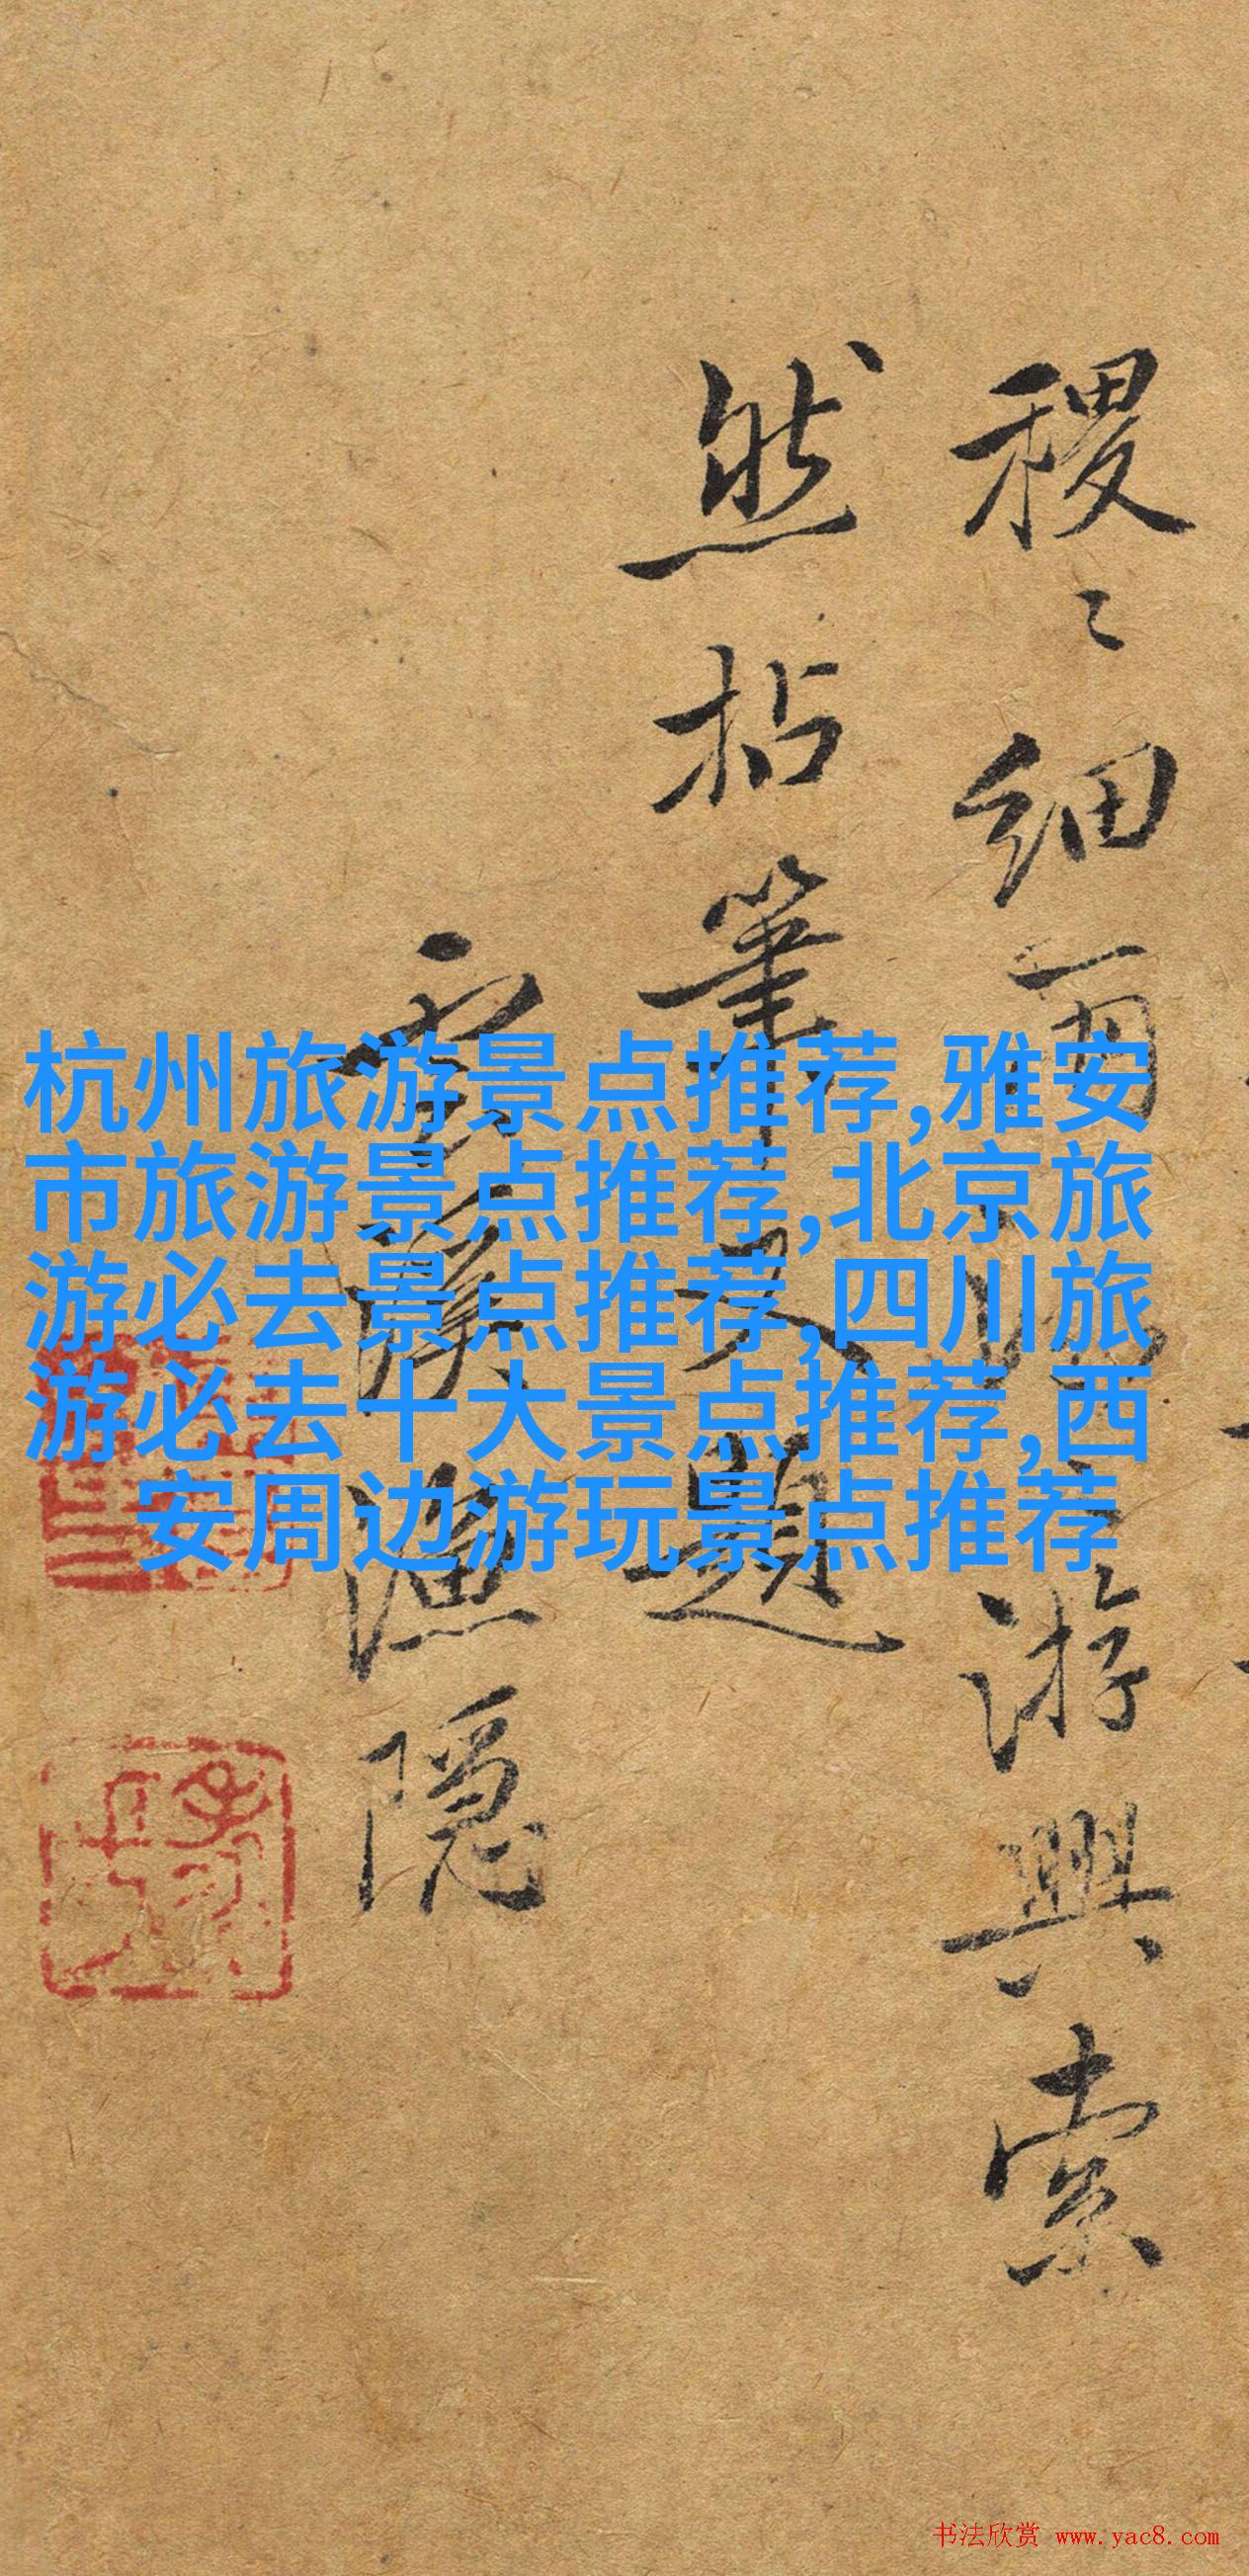 稷〻細雨
游興索
然拈筆又題
雲溪漁隱
杭州旅游景点推荐,雅安
市旅游景点推荐,北京旅
游必去景点推荐,四川旅
游必去十大景点推荐,西
安周边游玩景点推荐
书法欣赏 www.yac8.com